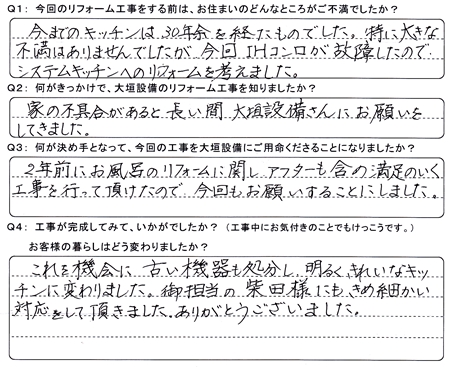 Q1: 今回のリフォーム工事をする前は、お住まいのどんなところがご不満でしたか?
今までのキッチンは、30年余を経たものでした。特に大きな
不満はありませんでしたが、今回IHコンロが故障したので
システムキッチンへのリフォームを考えました。
Q2: 何がきっかけで、大垣設備のリフォーム工事を知りましたか?
家の不具合があると長い間大垣設備さんにお願いを
してきました。
Q3: 何が決め手となって、今回の工事を大垣設備にご用命くださることになりましたか?
2年前にお風呂のリフォームに関しアフターも含め満足のいく
工事を行って頂けたので、今回もお願いすることにしました。
Q4: 工事が完成してみて、いかがでしたか?(工事中にお気付きのことでもけっこうです。)
お客様の暮らしはどう変わりましたか?
これを機会に古い機器も処分し、明るく、きれいなキッ
チンに変わりました。御担当の柴田様にも、きめ細かい
対応をして頂きました。ありがとうございました。